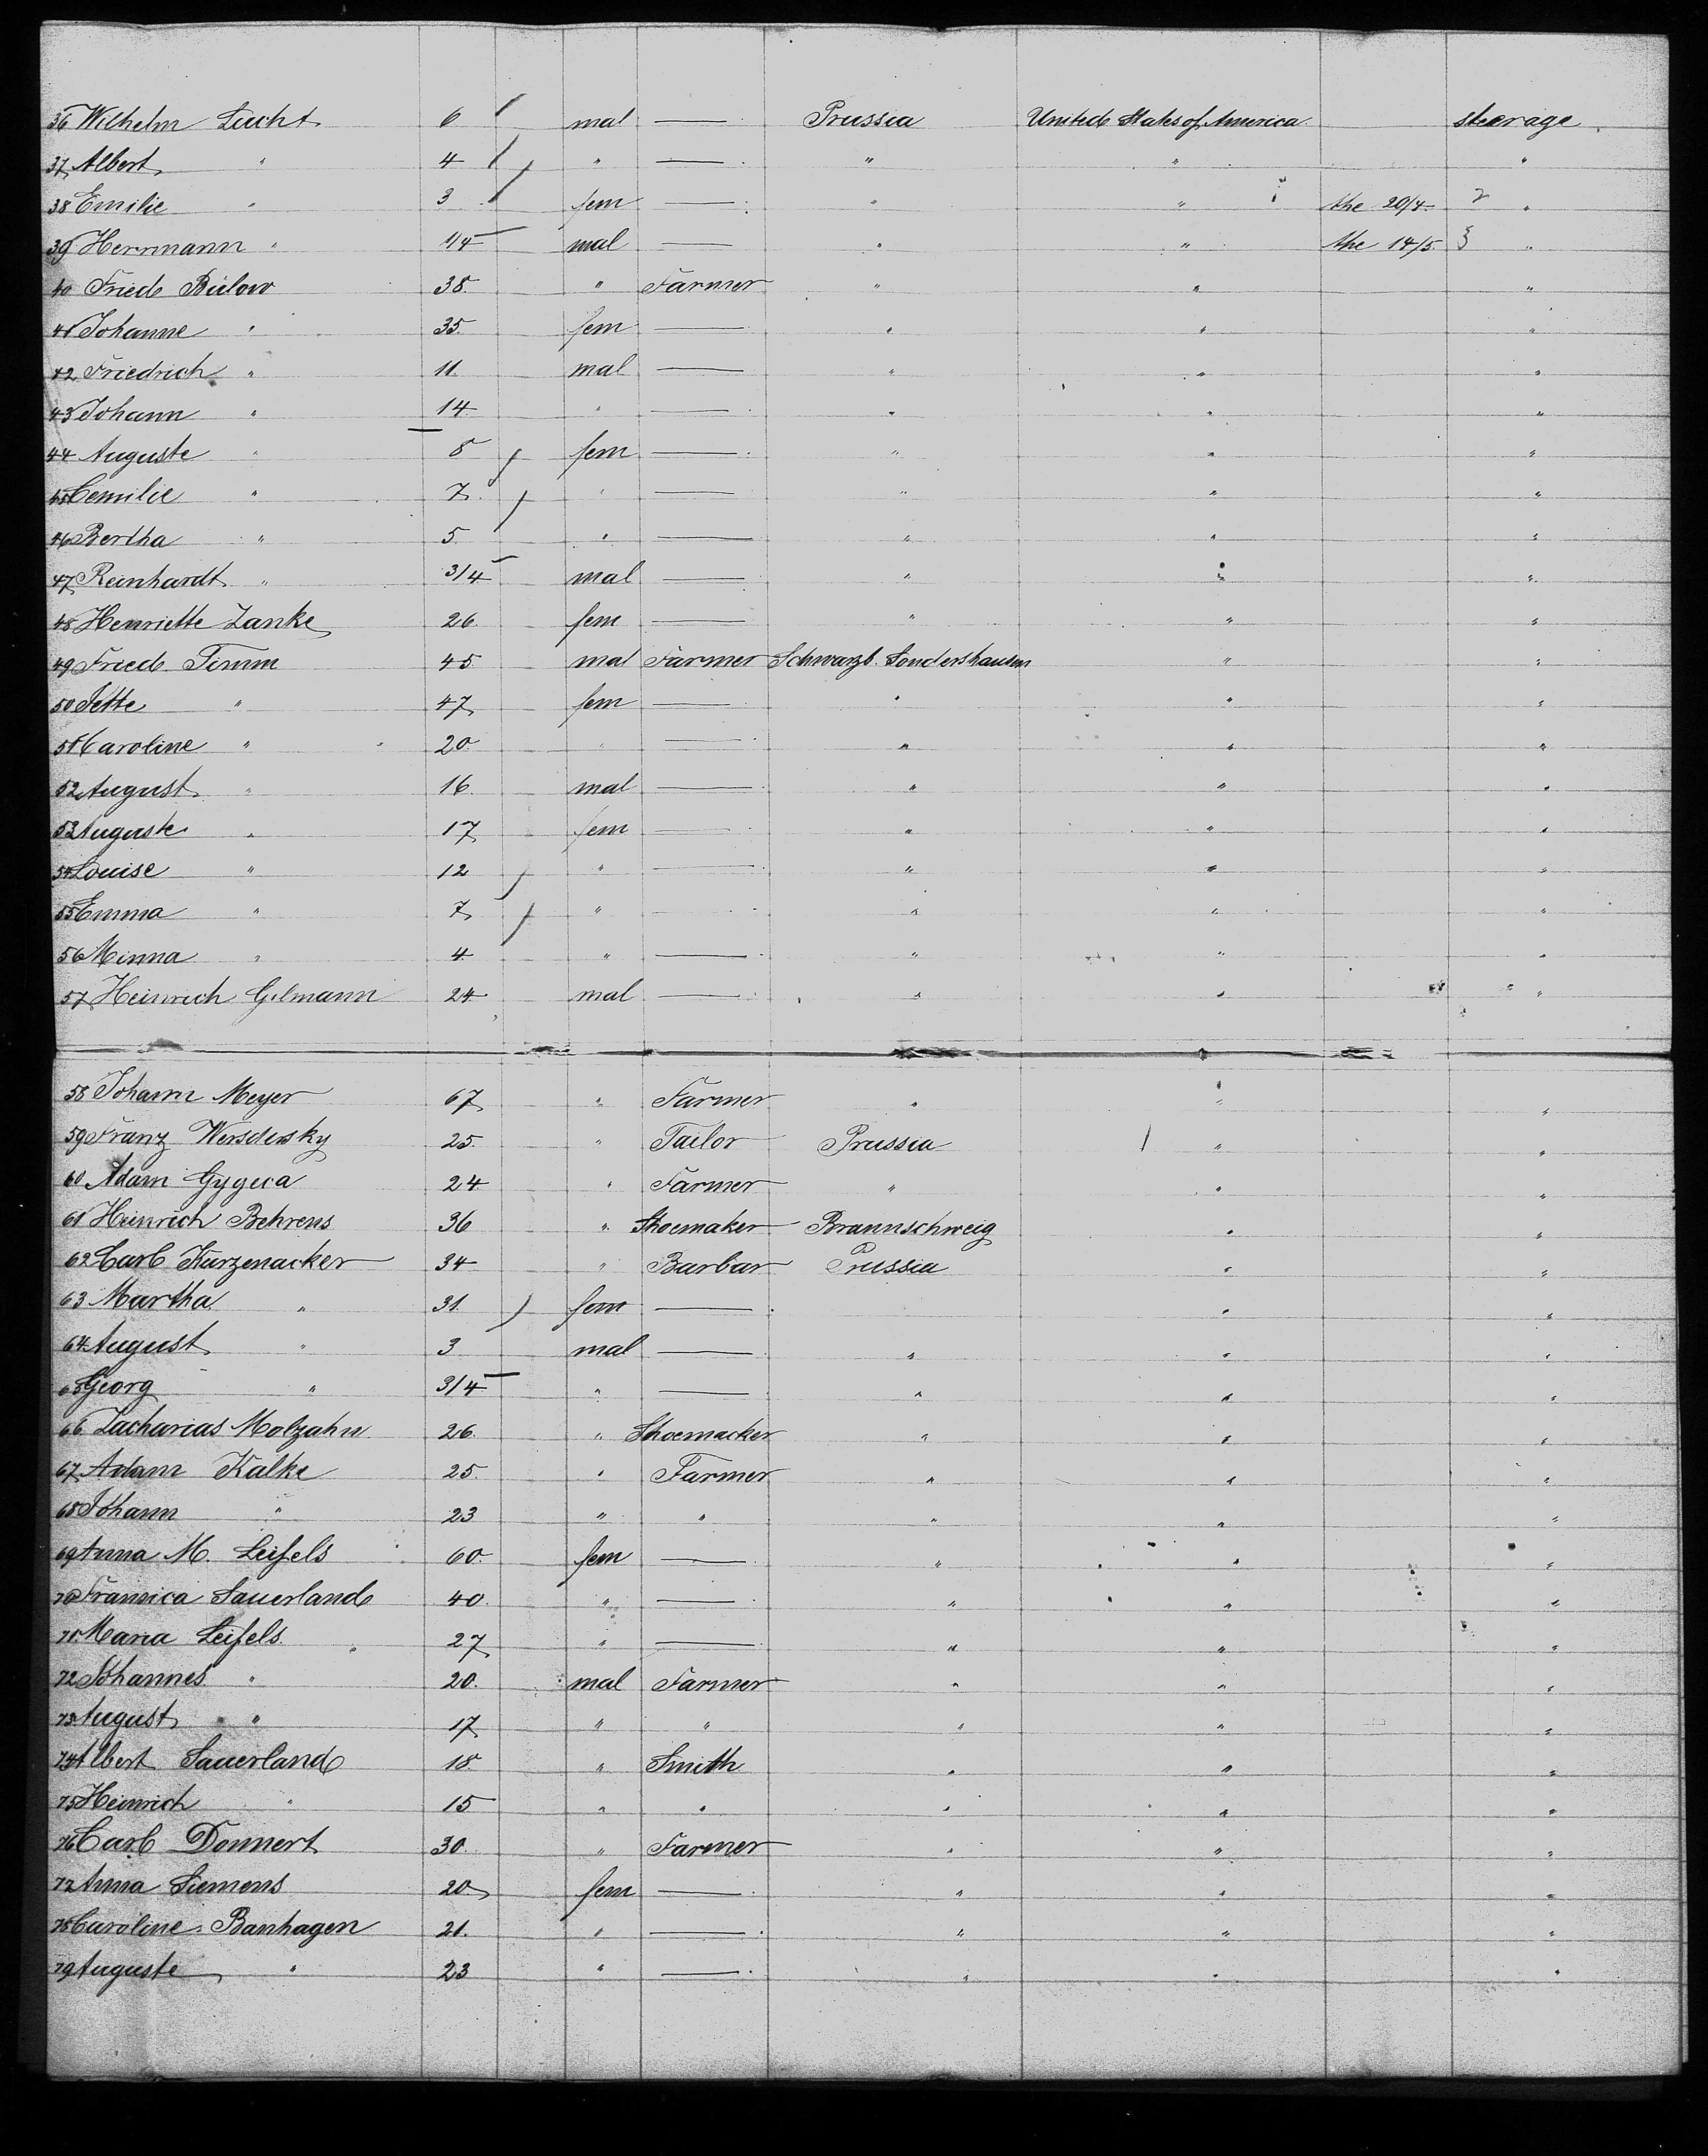 36 Wilhelm Lucht 6 mal — Prussia United States of America steerage
37 Albert " 4 " — " " "
38 Emilie " 3 fem — " " the 20/4 "
39 Herrmann " 1/4 mal — " " the 14/5 "
40 Fried Bülow 38 " Farmer " " "
41 Johanne " 35 fem — " " "
42 Friedrich " 11 mal — " " "
43 Johann " 14 " — " " "
44 Auguste " 8 fem — " " "
45 Cemilie " 7 " — " " "
46 Bertha " 5 " — " " "
47 Reinhardt " 3/4 mal — " " "
48 Henriette Zanke 26 fem — " " "
49 Fried. Timm 45 mal Farmer Schwarzb. Sondershausen " "
50 Jette " 47 fem — " " "
51 Caroline " 20 " — " " "
52 August " 16 mal — " " "
53 Auguste " 17 fem — " " "
54 Louise " 12 " — " " "
55 Emma " 7 " — " " "
56 Minna " 4 " — " " "
57 Heinrich Gilmann 24 mal — " " "
58 Johann Meyer 67 " Farmer " " "
59 Franz 25 " Tailor Prussia " "
60 Adam Gygica 24 " Farmer " " "
61 Heinrich Behrens 36 " Shoemaker Braunschweig " "
62 Carl Kurzenacker 34 " Barbar Prussia " "
63 Martha " 31 fem — " "
64 August " 3 mal — " " "
65 Georg " 3/4 " — " " "
66 Zacharias Molzahn 26 " Shoemacker " " "
67 Adam Kalke 25 " Farmer " " "
68 Johann " 23 " " " " "
69 Anna M. Leifels 60 fem — " " "
70 Fransica Sauerland 40 " — " " "
71 Maria Leifels 27 " — " " "
72 Johannes " 20 mal Farmer " " "
73 August " 17 " " " " "
74 Albert Sauerland 18 " Smith " " "
75 Heinrich " 15 " " " " "
76 Carl Donnert 30 " Farmer " " "
77 Anna Siemens 20 fem — " " "
78 Caroline Banhagen 21 " — " " "
79 Auguste " 23 " — " " "